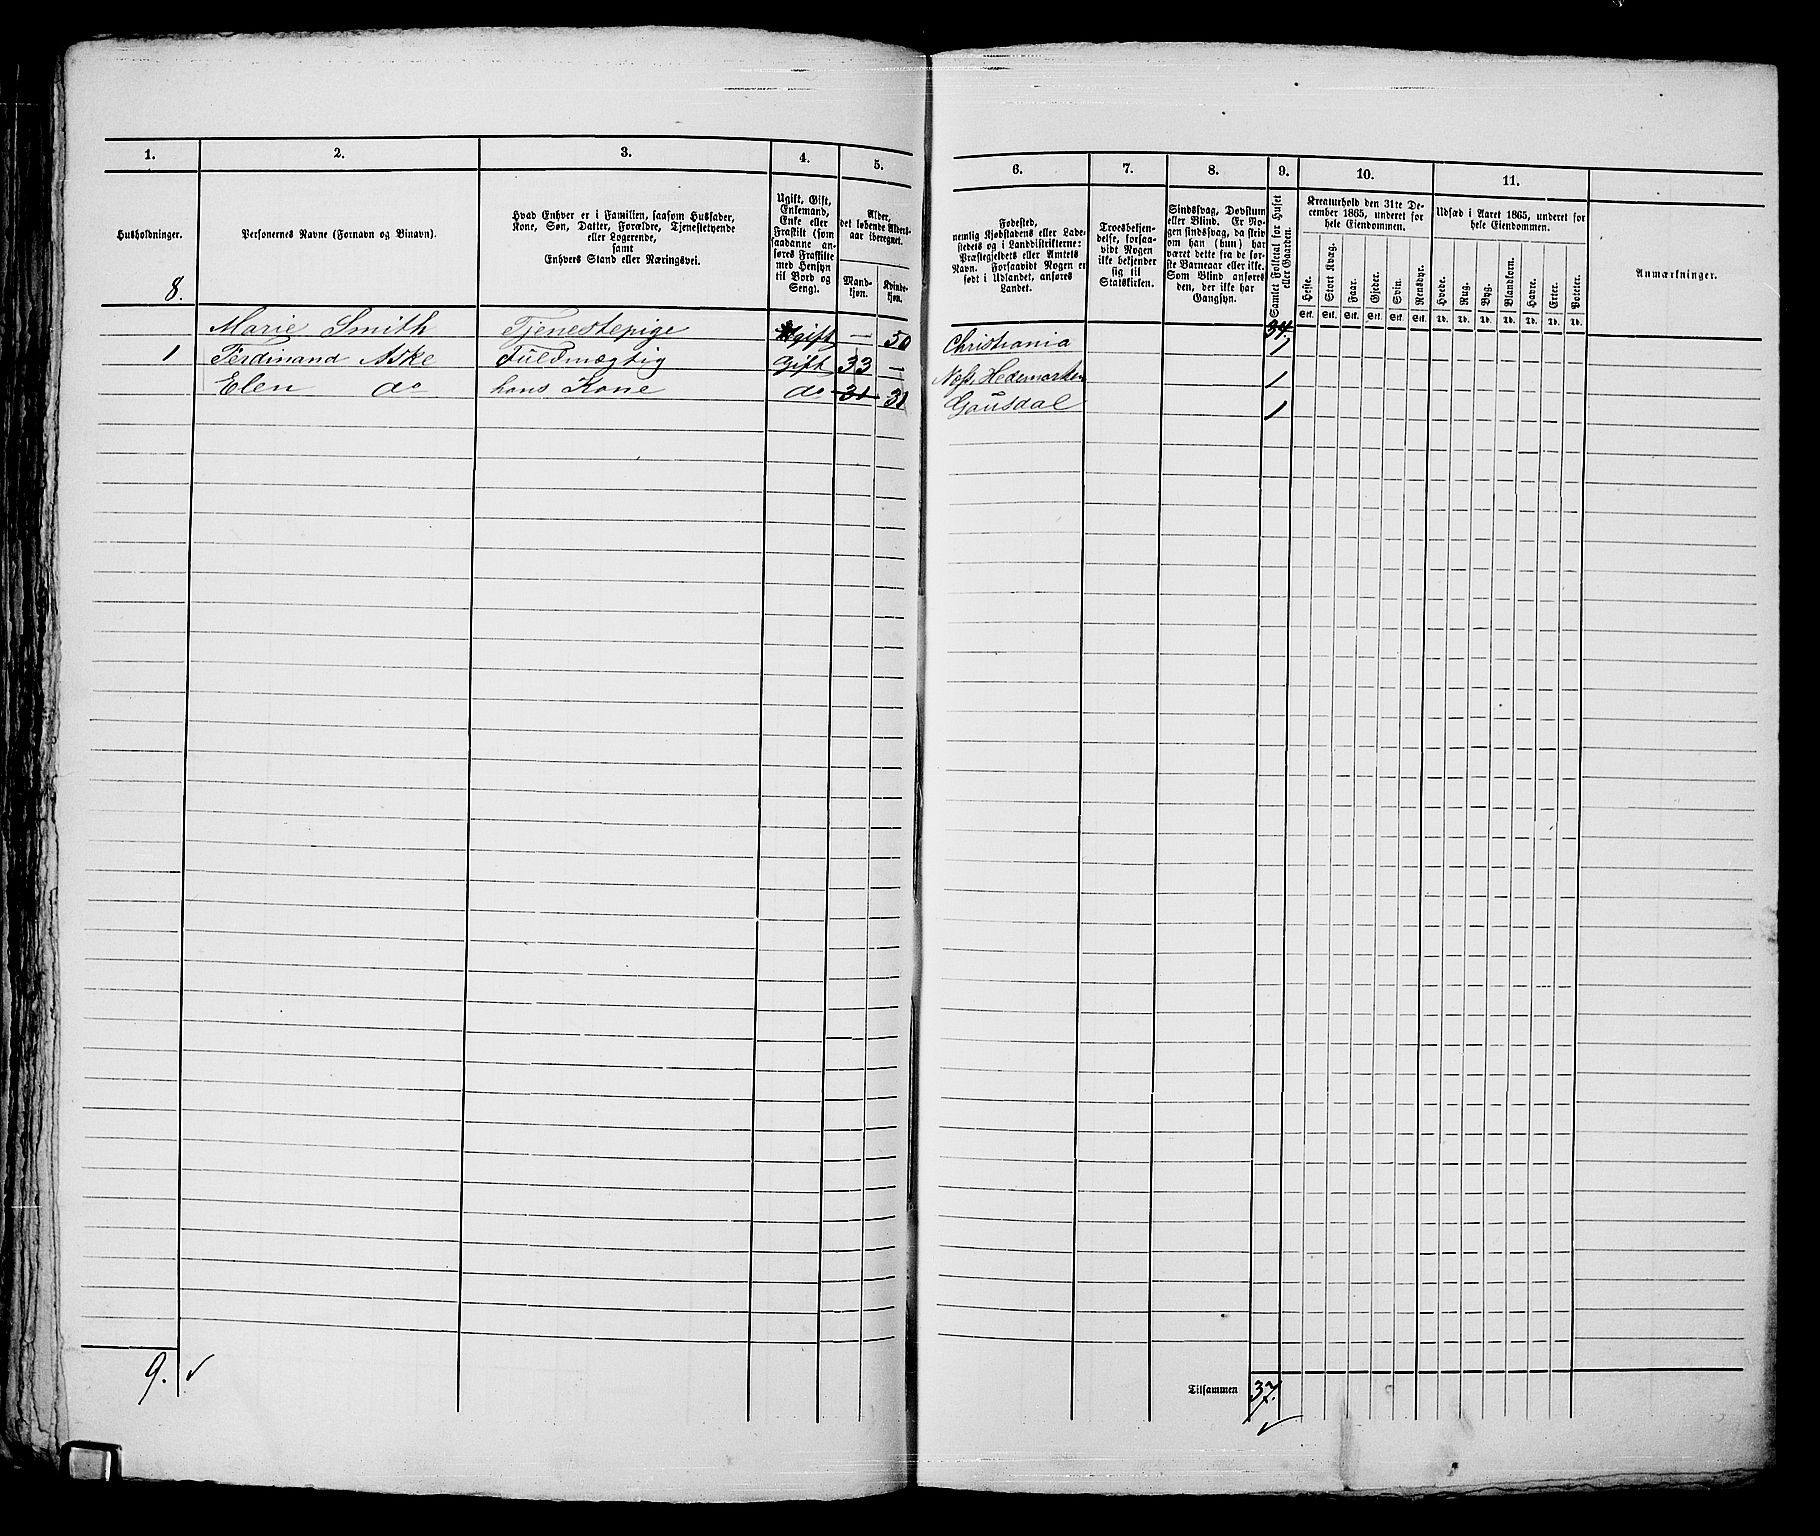 1.
2.
3.
4.
5.
Husholdninger.
Personernes Navne (Fornavn og Binavn).
Hvad Enhver er i Familien, saasom Husfader,
Kone, Søn, Datter, Forældre, Tjenestetyende
eller Logerende,
samt
Enhvers Stand eller Næringsvei.
Ugift, Gift,
Enkemand,
Enke eller
Fraskilt (som
saadanne an-
føres Fraskilte
med Hensyn
til Bord og
Seng).
Alder,
det løbende Alders-
aar iberegnet.
Mand-
kjøn.
Kvinde-
kjøn.
8.
Marie Smith Tjenestepige Ugift — 50
1 Ferdinand Aske Fuldmægtig Gift 33 —
Elen do hans Kone do 31 31
9.
6.
7.
8.
9.
10.
11.
Fødested,
nemlig Kjøbstadens eller Lade-
stedets og i Landdistrikterne:
Præstegjeldets eller Amtets
Navn. Forsaavidt Nogen er
født i Udlandet, anføres
Landet.
Troesbekjen-
delse, forsaa-
vidt Nogen
ikke bekjender
sig til
Statskirken.
Sindssvag, Døvstum
eller Blind. Er No-
gen sindssvag, da skriv
om han (hun) har
været dette fra de før-
ste Barneaar eller ikke.
Som Blind anføres
den, der ikke har
Gangsyn.
Samlet Folketal for Huset
eller Gaarden.
Kreaturhold den 31te De-
cember 1865, underet for
hele Eiendommen.
Heste.
Stor Kvæg.
Faar.
Gjeder.
Svin.
Rensdyr.
Stk. Stk. Stk. Stk. Stk. Stk.
Udsæd i Aaret 1865, underet for
hele Eiendommen.
Hvede.
Rug.
Byg.
Blandkorn.
Havre.
Erter.
Poteter.
Td. Td. Td. Td. Td. Td. Td.
Anmærkninger.
34.
Christiania 1
Næs, Hedemarken 1
Gausdal 1
Tilsammen 37.